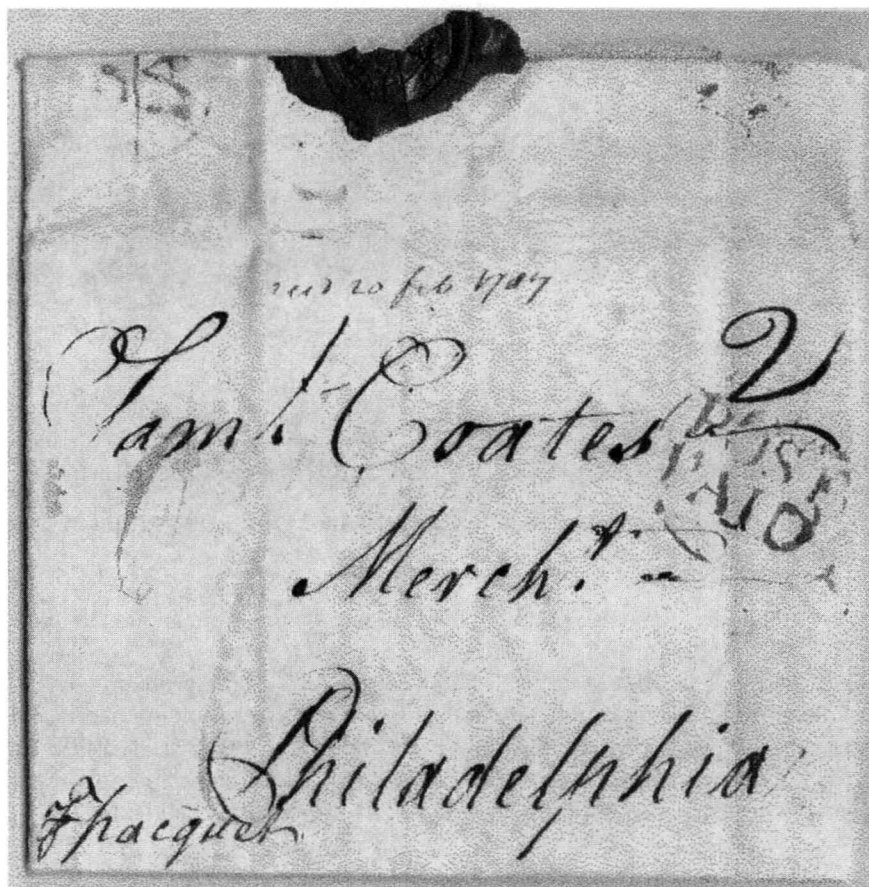 recd 20 feb 1787
2
Saml. Coates
Mercht.
Philadelphia
pacquet